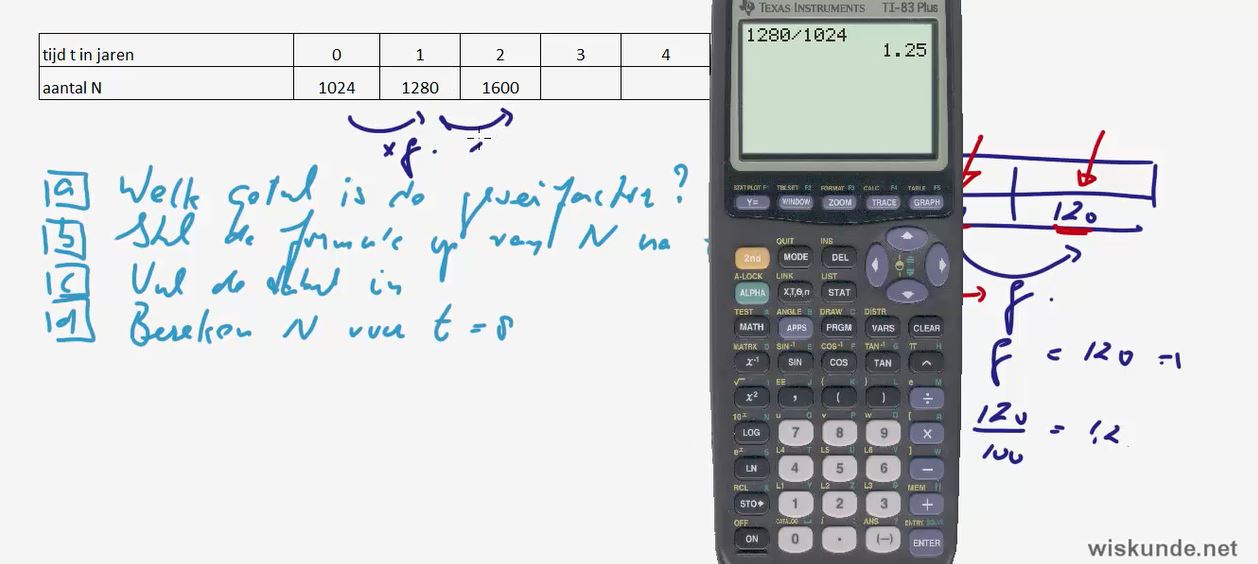 tijd t in jaren 0 1 2 3 4
aantal N 1024 1280 1600
× g . ×
a Welk getal is de groeifactor?
b Stel de formule op van N na
c Vul de tabel in
d Bereken N voor t = 8
TEXAS INSTRUMENTS TI-83 Plus
1280/1024
1.25
STAT PLOT F1 TBLSET F2 FORMAT F3 CALC F4 TABLE F5
Y= WINDOW ZOOM TRACE GRAPH
QUIT INS
2nd MODE DEL
A-LOCK LINK LIST
ALPHA X,T,Θ,n STAT
TEST A ANGLE B DRAW C DISTR
MATH APPS PRGM VARS CLEAR
MATRX D SIN⁻¹ E COS⁻¹ F TAN⁻¹ G π H
x⁻¹ SIN COS TAN ^
√ I EE J { K } L e M
x² , ( ) ÷
10ˣ N u O v P w Q [ R
LOG 7 8 9 ×
eˣ S L4 T L5 U L6 V ] W
LN 4 5 6 −
RCL X L1 Y L2 Z L3 θ MEM "
STO▸ 1 2 3 +
OFF CATALOG i : ANS ? ENTRY SOLVE
ON 0 . (−) ENTER
120
g .
g = 120
120
100
= 1,2
wiskunde.net